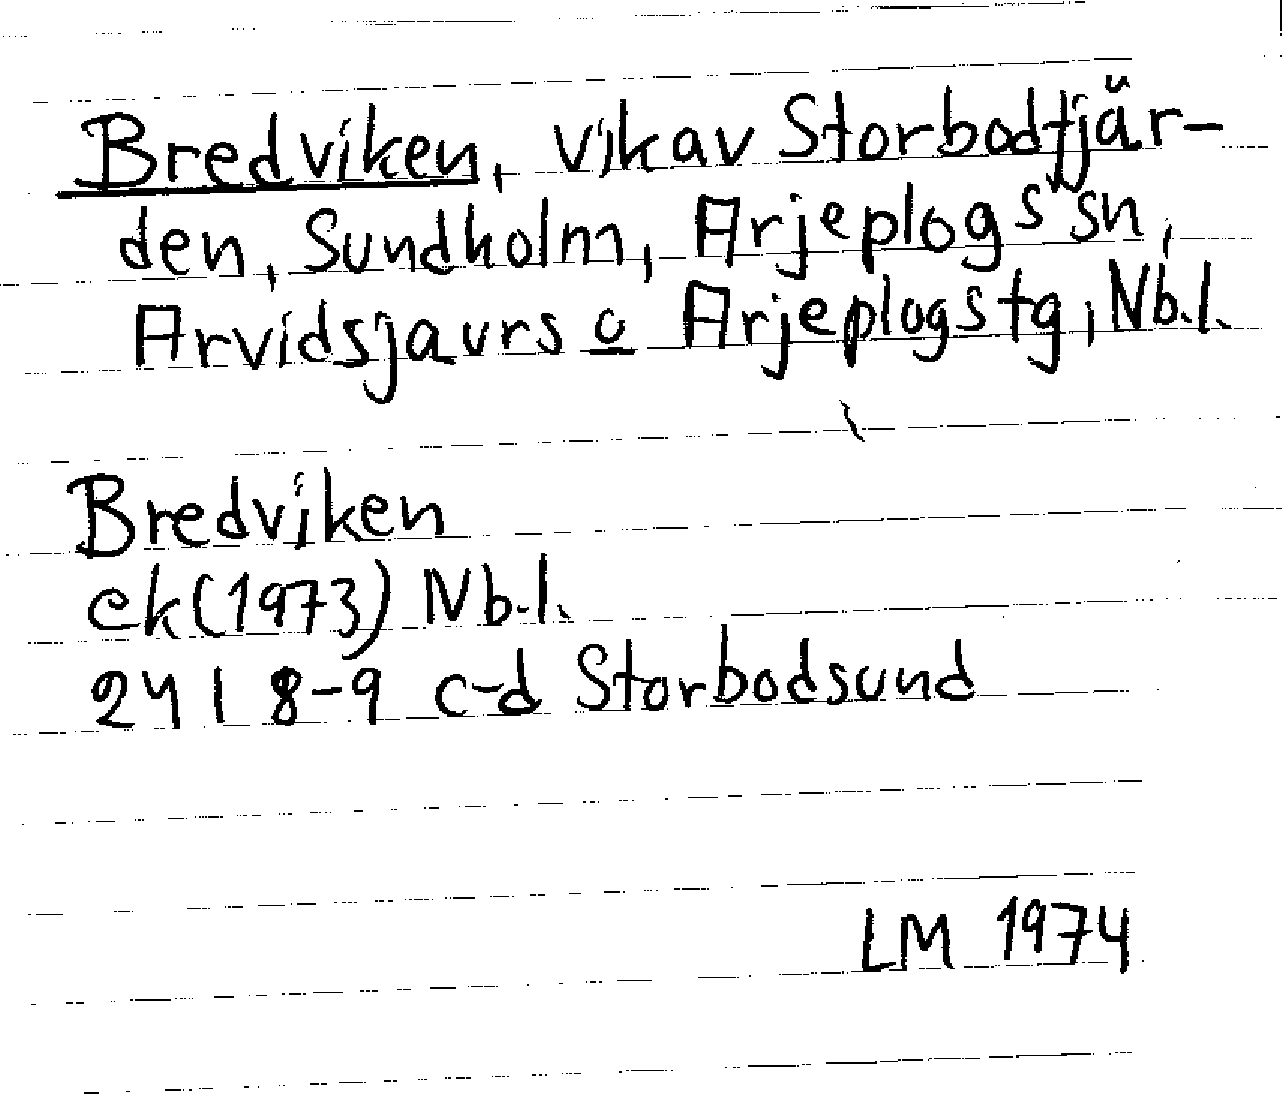 Bredviken, vik av Storbodfjär-
den, Sundholm, Arjeplogs sn,
Arvidsjaurs o Arjeplogs tg, Nb.l.
Bredviken
ek (1973) Nb.l.
24 I 8-9 c-d Storbodsund
LM 1974